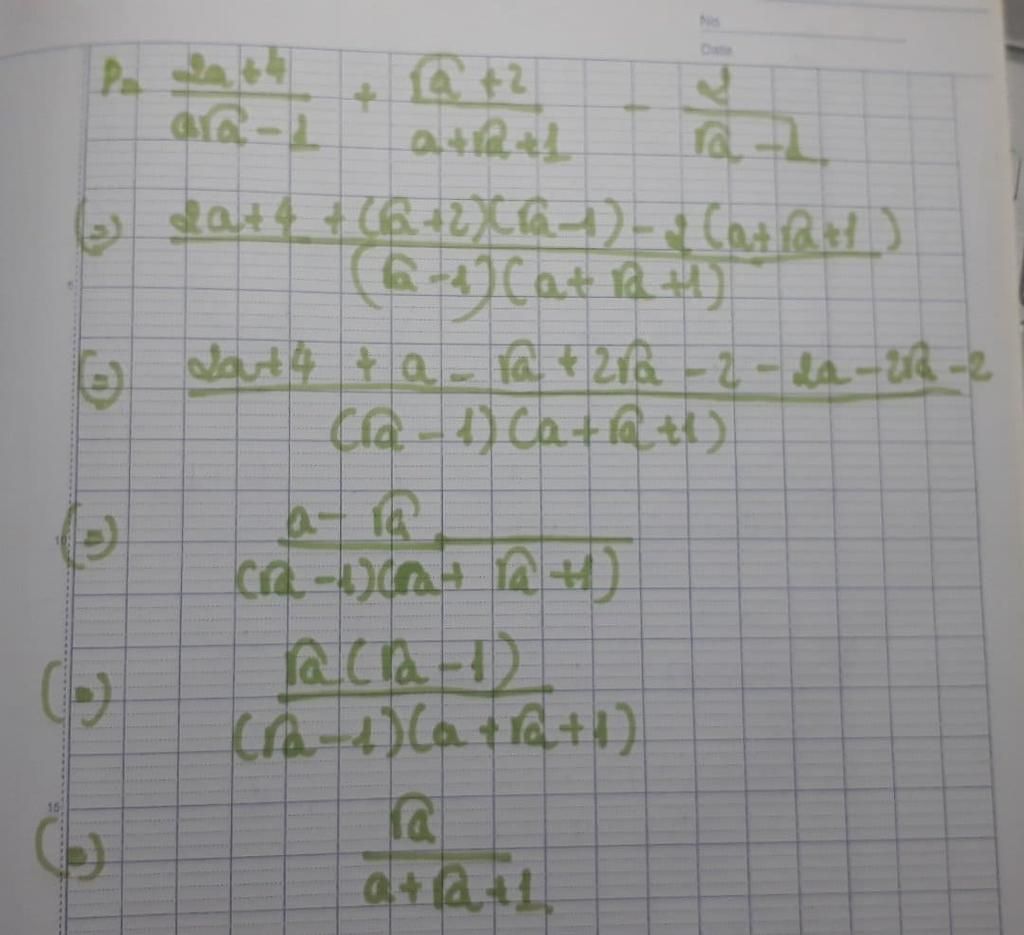 No
Date
P = \frac{2a+4}{a\sqrt{a}-1} + \frac{\sqrt{a}+2}{a+\sqrt{a}+1} - \frac{2}{\sqrt{a}-1}
(=) \frac{2a+4+(\sqrt{a}+2)(\sqrt{a}-1)-2(a+\sqrt{a}+1)}{(\sqrt{a}-1)(a+\sqrt{a}+1)}
5
(=) \frac{2a+4+a-\sqrt{a}+2\sqrt{a}-2-2a-2\sqrt{a}-2}{(\sqrt{a}-1)(a+\sqrt{a}+1)}
10
(=) \frac{a-\sqrt{a}}{(\sqrt{a}-1)(a+\sqrt{a}+1)}
(=) \frac{\sqrt{a}(\sqrt{a}-1)}{(\sqrt{a}-1)(a+\sqrt{a}+1)}
15
(=) \frac{\sqrt{a}}{a+\sqrt{a}+1}